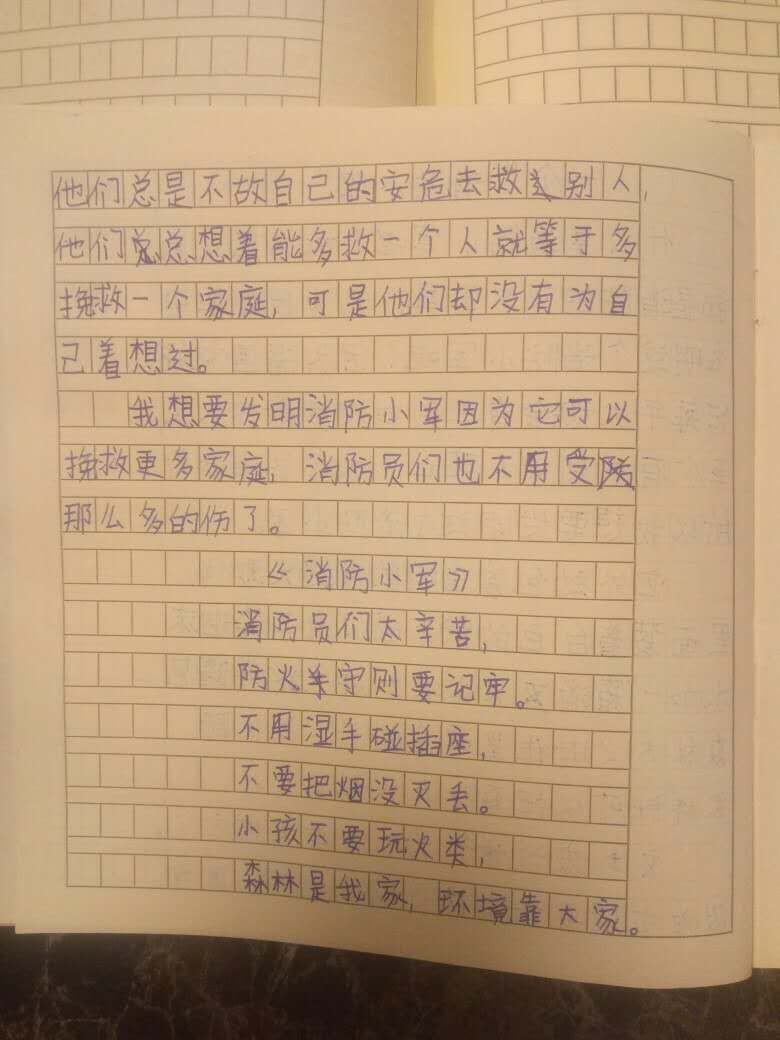 他们总是不故自己的安危去救别人,
他们总想着能多救一个人就等于多
挽救一个家庭,可是他们却没有为自
己着想过。
我想要发明消防小军因为它可以
挽救更多家庭,消防员们也不用受
那么多的伤了。
《消防小军》
消防员们太辛苦,
防火手守则要记牢。
不用湿手碰插座,
不要把烟没灭丢。
小孩不要玩火类,
森林是我家,环境靠大家。